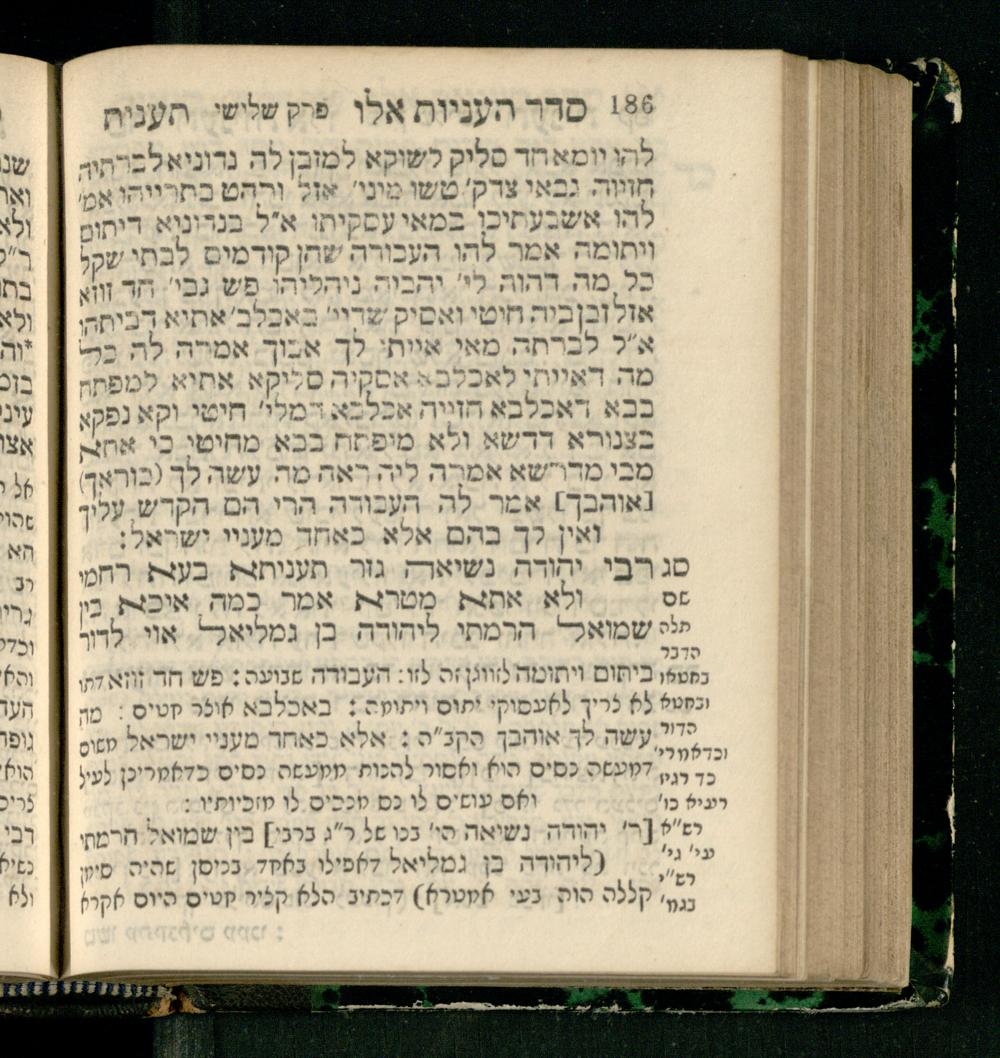 186 סדר העניות אלו פרק שלישי תענית
להו יומא חד סליק לשוקא למזבן לה נדוניא לברתיה
חזיוה גבאי צדק׳ טשו מיני׳ אזל ורהט בתרייהו אמ׳
להו אשבעתיכו במאי עסקיתו א״ל בנדוניא דיתום
ויתומה אמר להו העבודה שהן קודמים לבתי שקל
כל מה דהוה לי׳ יהביה ניהליהו פש גבי׳ חד זוזא
אזל זבן ביה חיטי ואסיק שדיי׳ באכלב׳ אתיא דביתהו
א״ל לברתה מאי אייתי לך אבוך אמרה לה כל
מה דאייתי לאכלבא אסקיה סליקא אתיא למפתח
בבא דאכלבא חזייה אכלבא דמלי׳ חיטי וקא נפקא
בצנורא דדשא ולא מיפתח בבא מחיטי כי אתא
מבי מדרשא אמרה ליה ראה מה עשה לך (בוראך)
[אוהבך] אמר לה העבודה הרי הם הקדש עליך
ואין לך בהם אלא כאחד מעניי ישראל:
סג רבי יהודה נשיאה גזר תעניתא בעא רחמי
ולא אתא מטרא אמר כמה איכא בין
שמואל הרמתי ליהודה בן גמליאל אוי לדור
ביתום ויתומה לזווגן זה לזו: העבודה שבועה: פש חד זוזא דתו
לא צריך לאעסוקי יתום ויתומה: באכלבא אוצר חטים: מה
עשה לך אוהבך הקב״ה: אלא כאחד מעניי ישראל משום
דמעשה נסים הוא ואסור להנות ממעשה נסים כדאמרינן לעיל
ואם עושים לו נס מנכים לו מזכיותיו:
[ר׳ יהודה נשיאה הי׳ בנו של ר״ג ברבי] בין שמואל הרמתי
(ליהודה בן גמליאל דאפילו באחד בניסן שהיה סימן
קללה הוה בעי אמטרא) דכתיב הלא קציר חטים היום אקרא
שם
תלה
הדבר
בחטאו
ובחטא
הדור
וכדאמרי׳
כד רגיז
רעיא כו׳
רש״א
עי׳ גי׳
רש״י
בגמ׳